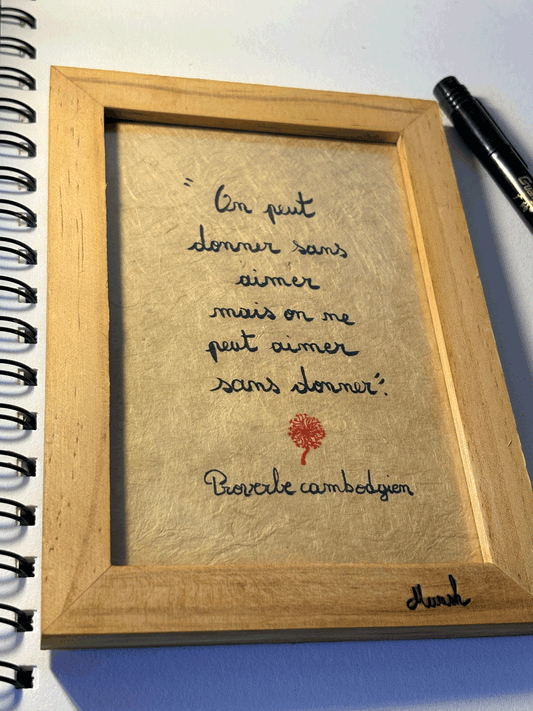 " On peut
donner sans
aimer
mais on ne
peut aimer
sans donner".
Proverbe cambodgien